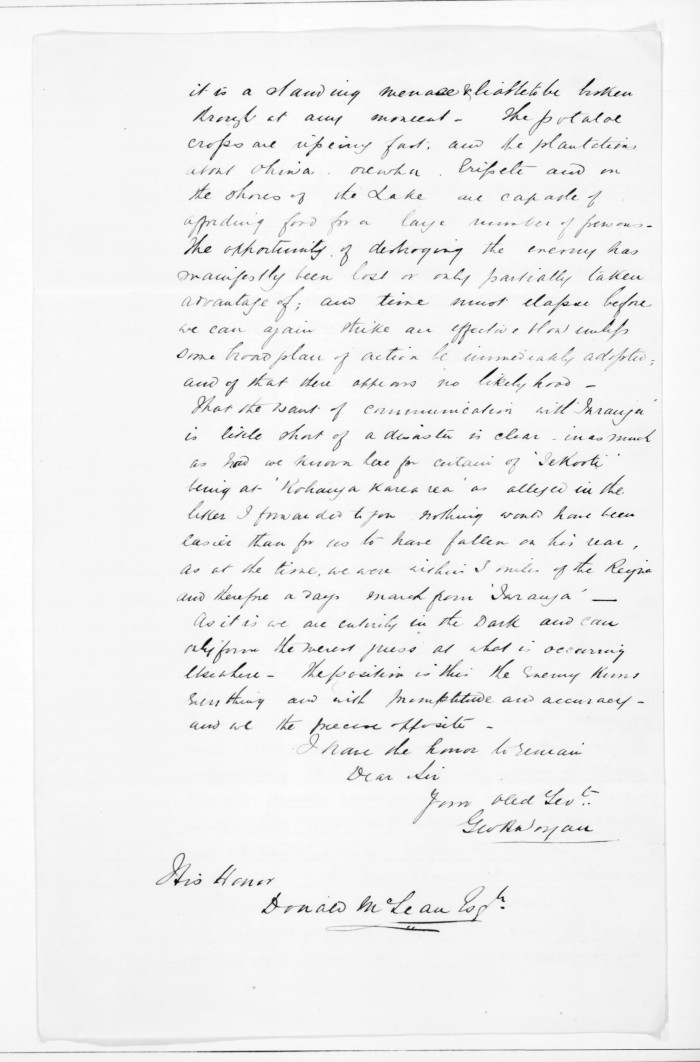 it is a standing menace & liable to be broken
through at any moment - The potatoe
crops are ripening fast. and the plantations
about Ohiwa. and on
the shores of the Lake are capable of
affording food for a large number of persons -
The opportunity of destroying the enemy has
manifestly been lost or only partially taken
advantage of; and time must elapse before
we can again strike an effective blow unless
some broad plan of action be immediately adopted;
and of that there appears no likelyhood -
That the want of communication with 'Turanga'
is little short of a disaster is clear - inasmuch
as had we known here for certain of 'Te Kooti'
being at 'Kohanga Karearea' as alleged in the
letter I forwarded to you nothing would have been
easier than for us to have fallen on his rear,
as at the time, we were within 5 miles of the
and therefore a days march from 'Turanga' -
As it is we are entirely in the Dark and can
only form the merest guess as what is occurring
elsewhere - The position is this the Enemy knows
Everything and with promptitude and accuracy -
and we the precise opposite -
I have the honor to remain
Dear Sir
Your obed Servt.
Geo
His Honor
Donald McLean Esqre